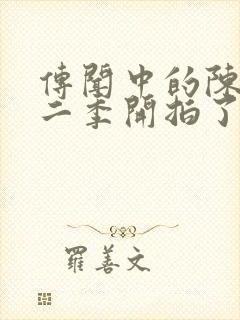 傳聞中的陳
二季開拍了
羅善文